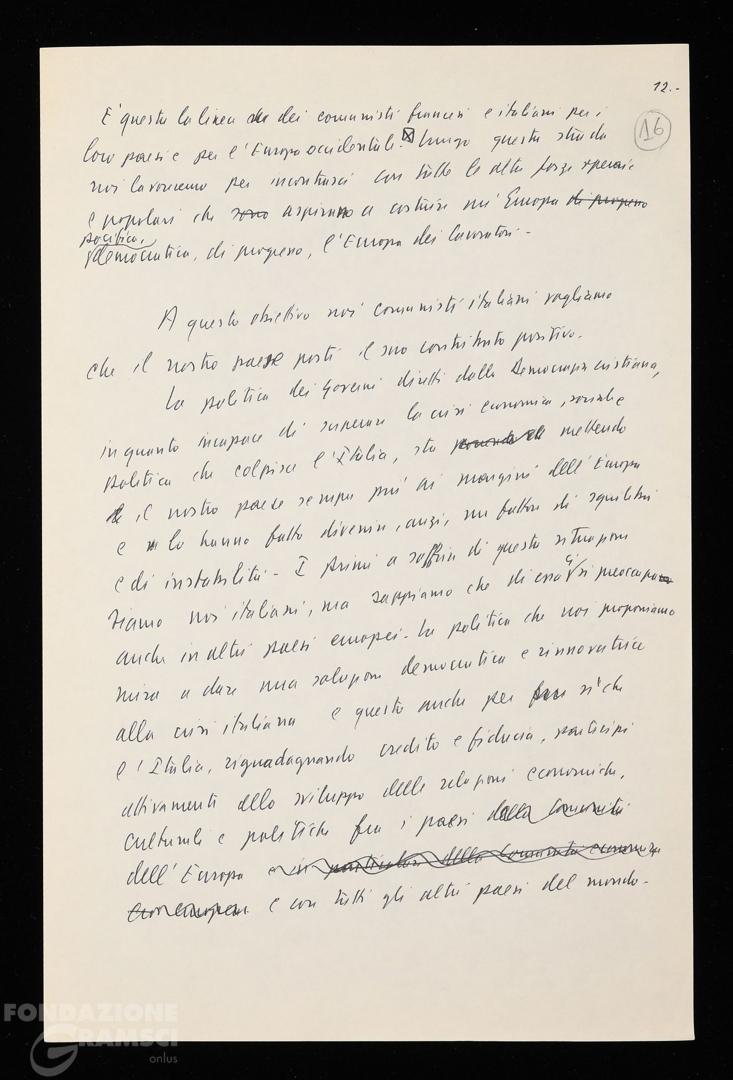 12.-
16
E' questa la linea che dei comunisti francesi e italiani per i
loro paesi e per l'Europa occidentale. Lungo questa strada
noi lavoreremo per incontrarci con tutte le altre forze operaie
e popolari che sono aspirano a costruire un' Europa di progresso
pacifica,
democratica, di progresso, l'Europa dei lavoratori -
A questo obiettivo noi comunisti italiani vogliamo
che il nostro paese porti il suo contributo positivo.
La politica dei Governi diretti dalla Democrazia cristiana,
in quanto incapace di superare la crisi economica, sociale e
politica che colpisce l'Italia, sta mettendo
il nostro paese sempre più ai margini dell'Europa
e lo hanno fatto divenire, anzi, un fattore di squilibri
e di instabilità - I primi a soffrire di questa situazione
siamo noi italiani, ma sappiamo che di essa ci si preoccupa
anche in altri paesi europei - La politica che noi proponiamo
mira a dare una soluzione democratica e rinnovatrice
alla crisi italiana e questo anche per far sì che
l'Italia, riguadagnando credito e fiducia, partecipi
attivamente allo sviluppo delle relazioni economiche,
culturali e politiche fra i paesi della Comunità
dell'Europa e in particolare della Comunità economica
europea e con tutti gli altri paesi del mondo -
FONDAZIONE
GRAMSCI
onlus